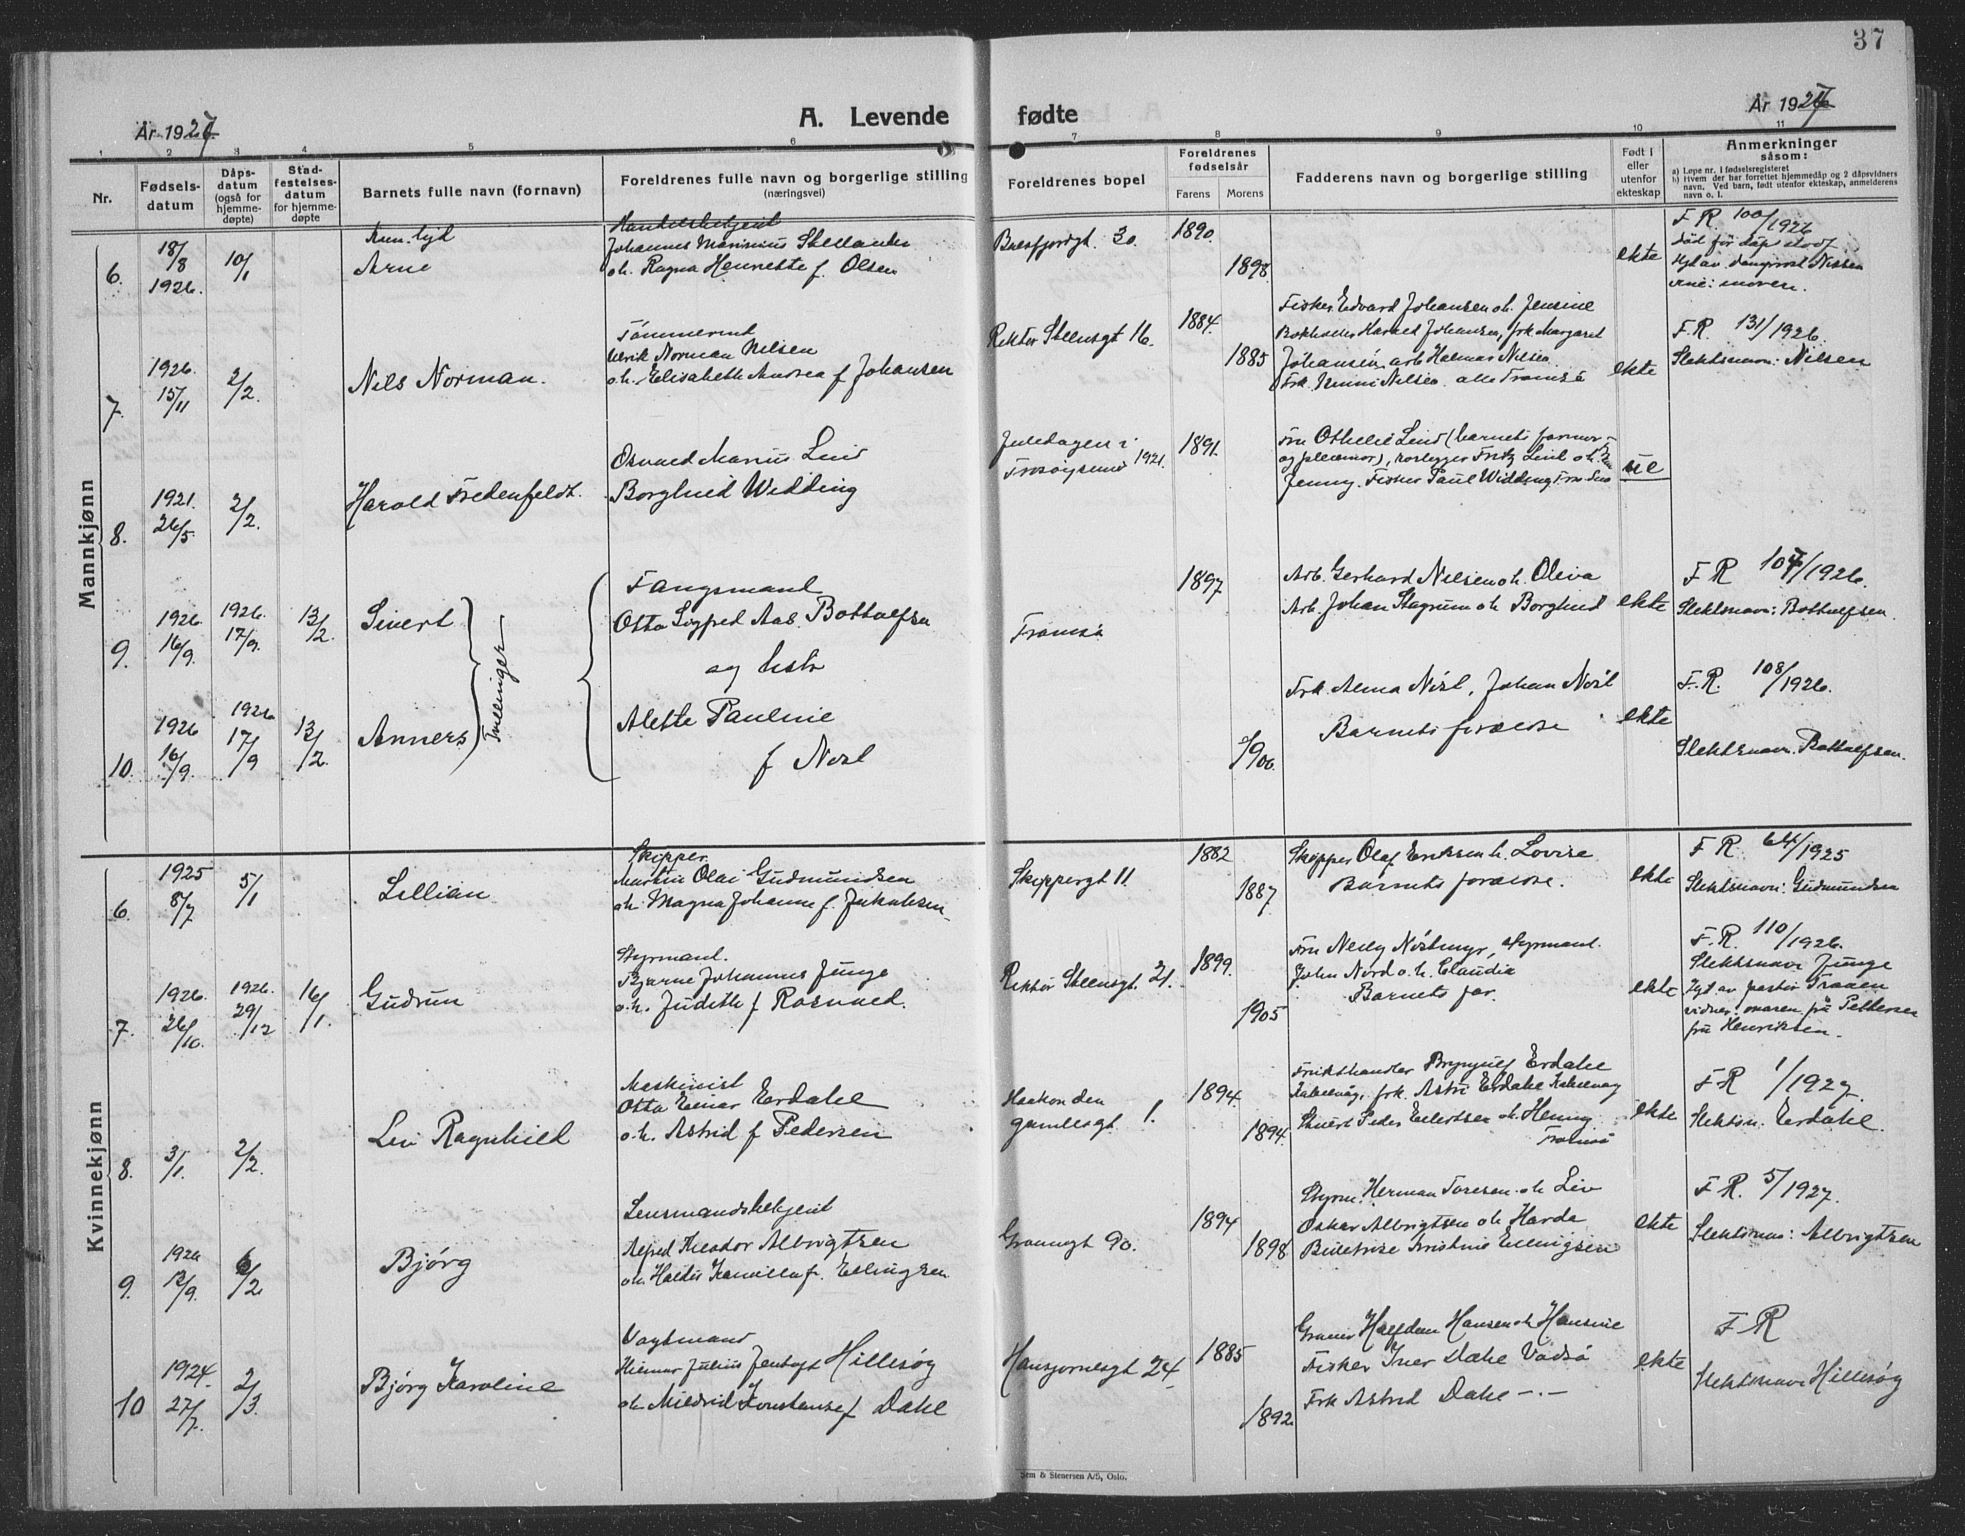 37
År 1927
A. Levende fødte
År 1927
1 2 3 4 5 6 7 8 9 10 11
Nr.
Fødsels-
datum
Dåps-
datum
(også for
hjemme-
døpte)
Stad-
festelses-
datum
for hjemme-
døpte
Barnets fulle navn (fornavn)
Foreldrenes fulle navn og borgerlige stilling
(næringsvei)
Foreldrenes bopel
Foreldrenes
fødselsår
Farens Morens
Fadderens navn og borgerlige stilling
Født i
eller
utenfor
ekteskap
Anmerkninger
såsom:
a) Løpe nr. i fødselsregisteret
b) Hvem der har forrettet hjemmedåp og 2 dåpsvidners
navn. Ved barn, født utenfor ekteskap, anmelderens
navn o. l.
Mannkjønn
6.
18/8
1926.
10/1
Arne
Johannes
o.h. Ragna Henriette f. Olsen
30.
1890.
1898.
ekte
F.R. 100/1926
7.
1926.
15/11
2/2.
Nils Norman.
Ulrik Norman Nilsen
o.h. Elisabeth Andrea f Johansen
Rektor Steensgt 16.
1884.
1885
Fisker Edvard Johansen o.h. Jensine
Bokholder Harald Johansen, frk Margaret
Johansen, arb. Halmar Nilsen
Frk. Nilsen. alle Tromsø
ekte
F.R. 131/1926.
Slektsnavn: Nilsen
8.
1921.
26/5
2/2.
Harald Fredenfeldt.
Osvald Marius Lind
Borghild Widding
1921.
1891.
Fru Othelie Lind (barnets farmor
og pleiemor),
Jenny. Fisker Paul Widding
9.
1926
16/9.
1926.
17/9.
13/2
Sivert
Tvillinger
Fangsmand
Otto Sigfred Bottolfsen
og hstr
Tromsø
1897
Arb. Gerhard Nilsen o.h. Oliva
Arb. Johan Stagrum o.h. Borghild
ekte
F R 107/1926.
Slektsnavn: Bottolfsen.
10.
1926
16/9.
1926
17/9
13/2.
Anners
Alette Pauline
f Nordl
1906.
Frk. Alma Nordl, Johan Nordl
Barnets forældre
ekte
F.R. 108/1926.
Slektsnavn. Bottolfsen.
Kvinnekjønn
6.
1925
8/7
5/1
Lillian
Skipper
Martin Olai Gudmundsen
o.h. Magna Johanne f. Jakobsen
Skippergt 11.
1882
1887
Skipper Olaf Eriksen o.h. Lovise
Barnets forældre.
ekte
F R. 64/1925
Slektsnavn: Gudmundsen
7.
1926.
26/10.
1926.
29/12
16/1.
Gudrun
Styrmand.
Bjarne Johannes Junge
o.h. Judith f Rosvold.
Rektor Steensgt. 21.
1899.
1905
Fru Nelly Nöstmyr, styrmand.
John Nord o.h. Claudia
Barnets far.
ekte
F.R. 110/1926.
Slektsnavn Junge
Hjd av pastor Traaen
vidner: moren fru Pettersen
fru Henriksen.
8.
3/1.
2/2.
Liv Ragnhild
Maskinist
Otto Einar Erdahl
o.h. Astrid f Pedersen
Haakon den
gamlesgt 1.
1894.
1894.
Frukthandler Brynjulf Erdahl
Kabelvåg, frk. Astri Erdahl Kabelvåg
Peder Eilertsen o.h. Henny
Tromsø
ekte
F R 1/1927.
Slektsn. Erdahl.
9.
1926
12/9.
6/2.
Bjørg
Lensmandsbetjent
Alfred Theodor Albrigtsen
o.h. Haldis Kamilla f. Ellingsen
Grønnegt 90.
1894
1898
Styrm. Herman Toresen o.h. Liv
Oskar Albrigtsen o.h. Harda
Kristine Ellingsen
ekte
F R. 5/1927.
Slektsnav: Albrigtsen
10
1924.
27/7.
2/3.
Bjørg Karoline
Vagtmand
Hilmar Julius Jentoft Hillesøy
o.h. Mildrid Konstanse f Dahl
Hansjordnesgt 24
1885
1892.
Halfdan Hansen o.h. Hansine
Fisker Iver Dahl Vadsø
Frk Astrid Dahl -.-
ekte
F R
Slektsnavn Hillesøy
Sem & Stenersen A/S, Oslo.